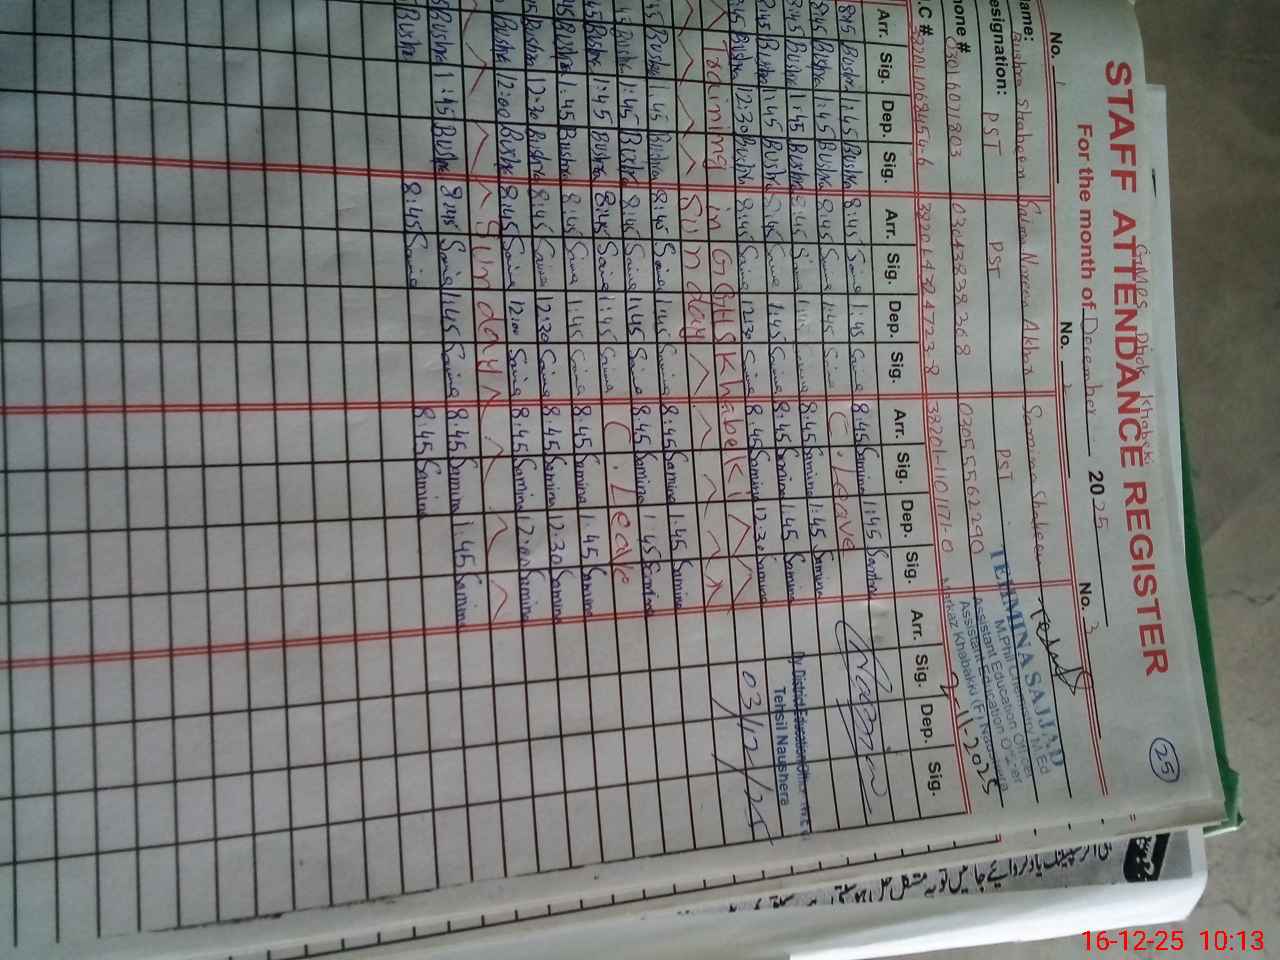 25
GMPS Dhok Khabaki
STAFF ATTENDANCE REGISTER
For the month of December 2025
No. 1 No. 2 No. 3
Name: Bushra Shaheen Saima Noreen Akhtar Samina Shaheen
Designation: PST PST PST
Phone # 03016011803 03043838368 03055562290
C # 38201-1101171-0
TEHMINA SAJJAD
M.Phil Chemistry, M.Ed
Assistant Education Officer
Assistant Education Officer
Markaz Khabakki (F) Naushera
11-2025
Arr. Sig. Dep. Sig. Arr. Sig. Dep. Sig. Arr. Sig. Dep. Sig. Arr. Sig. Dep. Sig.
8:45 Bushra 1:45 Bushra 8:45 Saima 1:45 Saima 8:45 Samina 1:45 Samina
8:45 Bushra 1:45 Bushra 8:45 Saima 1:45 Saima C. Leave
8:45 Bushra 1:45 Bushra 8:45 Saima 1:45 Saima 8:45 Samina 1:45 Samina
8:45 Bushra 1:45 Bushra 8:45 Saima 1:45 Saima 8:45 Samina 1:45 Samina
8:45 Bushra 12:30 Bushra 8:45 Saima 12:30 Saima 8:45 Samina 12:30 Samina
Dy District Education Officer
Tehsil Naushera
03/12/25
Training in GGHS Khabekki
Sunday
8:45 Bushra 1:45 Bushra 8:45 Saima 1:45 Saima 8:45 Samina 1:45 Samina
8:45 Bushra 1:45 Bushra 8:45 Saima 1:45 Saima 8:45 Samina 1:45 Samina
8:45 Bushra 1:45 Bushra 8:45 Saima 1:45 Saima C. Leave
8:45 Bushra 1:45 Bushra 8:45 Saima 1:45 Saima 8:45 Samina 1:45 Samina
8:45 Bushra 12:30 Bushra 8:45 Saima 12:30 Saima 8:45 Samina 12:30 Samina
Bushra 12:00 Bushra 8:45 Saima 12:00 Saima 8:45 Samina 12:00 Samina
Sunday
Bushra 1:45 Bushra 8:45 Saima 1:45 Saima 8:45 Samina 1:45 Samina
Bushra 8:45 Saima 8:45 Samina
16-12-25 10:13